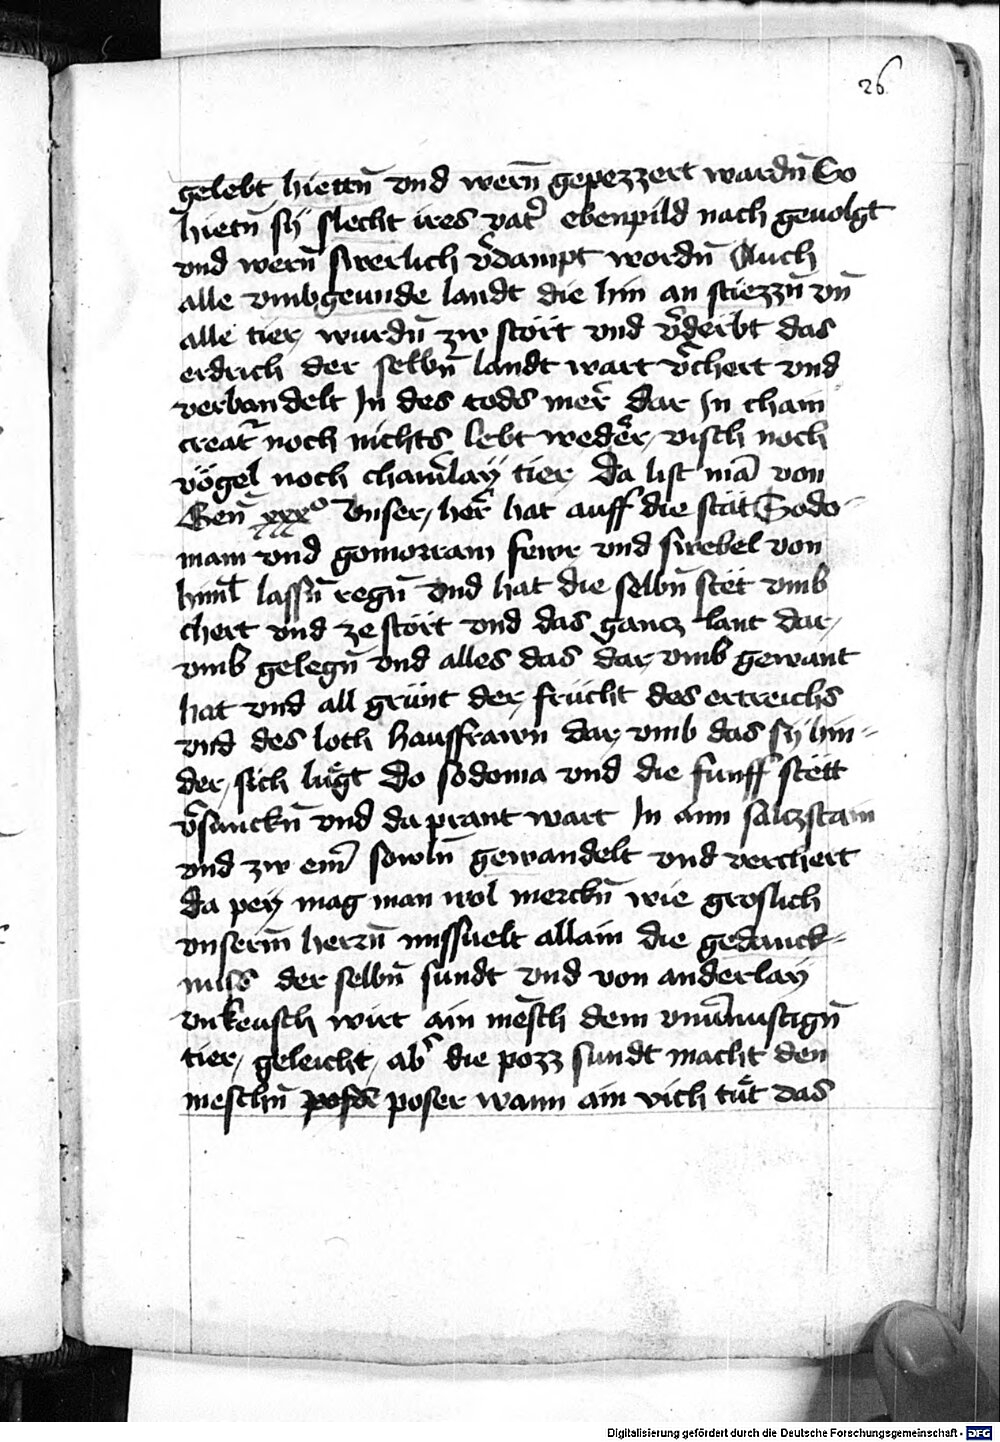 26
gelebt hiettn̄ vnd wern̄ gepezzert wardn̄ So
hietn̄ sÿ slecht ires vat̓ ebenpild nach geuolgt
vnd wern̄ swerlich v̓dampt wordn̄ Auch
alle vmbgeunde landt die hin an stiezzn̄ vn̄
alle tier wurdn̄ zw stört vnd v̓derbt das
erdrich der selbn̄ landt wart v̓chert vnd
verbandelt In des tods mer̄ dar In chain
creat̓ noch nichts lebt weder visch noch
vögel noch chain̓lay tier da list mā von
Gen̄ xxxº Vnser herr̄ hat auff die stät Sodo-
mam vnd gomorram fewr vnd swebel von
himl̄ lassn̄ regn̄ vnd hat die selbn̄ stët vmb
chert vnd ze stört vnd das gancz lant dar
vmb gelegn̄ vnd alles das dar vmb gewant
hat vnd all grünt der frücht des ertreichs
vnd des loth hausfrawn dar vmb das sÿ hin=
der sich lugt do sodoma vnd die funff stett
v̓sunckn̄ vnd da prant wart In ainn salczstain
vnd zw em̄ sowln̄ gewandelt vnd verchert
da pey mag man wol merckn̄ wie groslich
vnserm̄ herrn̄ missuelt allain die gedanck=
nuss der selbn̄ sundt vnd von anderlay
vnkeusch wirt ain mēsch dem vnuⁿnustign̄
tier geleicht ab̓ die pozz sundt macht den
meschn̄ poser wann ain vich tut das
Digitalisierung gefördert durch die Deutsche Forschungsgemeinschaft - DFG